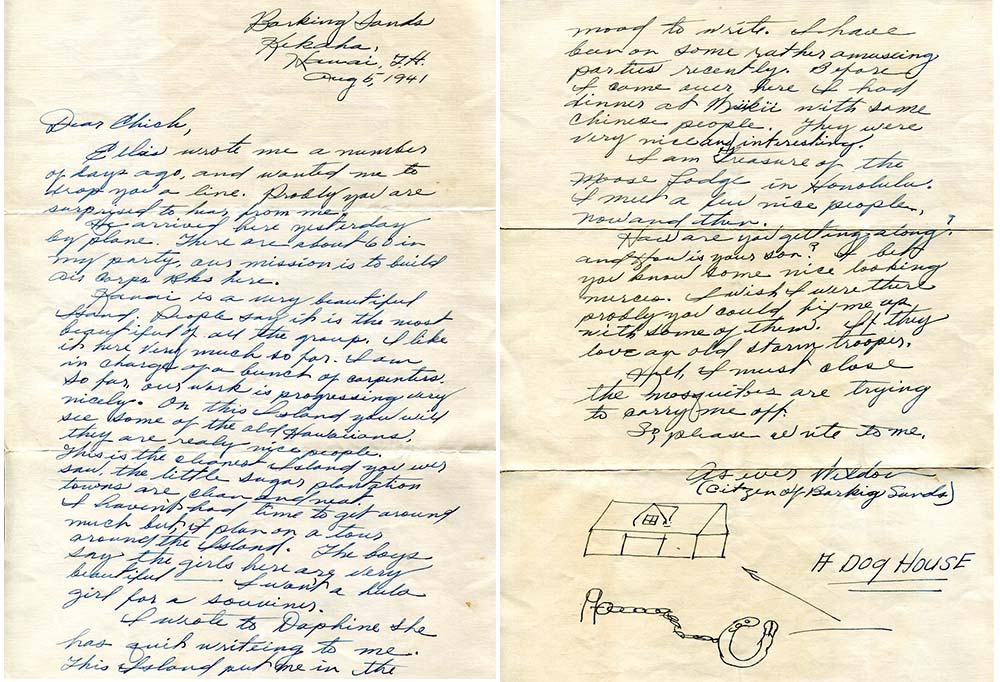 Barking Sands
Kekaha,
Kawai, T.H.
Aug 6, 1941
Dear Chick,
Ellis wrote me a number
of days ago, and wanted me to
drop you a line. Probly you are
surprised to hear from me.
We arrived here yesterday
by plane. There are about 60 in
my party, our mission is to build
air corps Bks here.
Kawai is a very beautiful
Iland. People say it is the most
beautiful of all the group. I like
it here very much so far. I am
in charge of a bunch of carpenters.
So far, our work is progressing very
nicely. On this Island you will
see some of the old Hawaiians,
they are realy nice people.
This is the cleanest Island you ever
saw, the little sugar plantation
towns are clean and neat
I havent had time to get around
much but, I plan on a tour
around the Island. The boys
say the girls here are very
beautiful — I want a hula
girl for a souviner.
I wrote to Daphine she
has quit writeing to me.
This Island put me in the
mood to write. I have
been on some rather amusing
parties recently. Before
I came over here I had
dinner at with some
Chinese people. They were
very nice and interesting.
I am Treasure of the
Moose Lodge in Honolulu.
I meet a few nice people,
now and then.
How are you getting along?
and how is your son? I bet
you know some nice looking
nurces. I wish I were there
probly you could fix me up
with some of them. If they
love an old storm trooper.
Well, I must close
the mosquitoes are trying
to carry me off.
So, please write to me.
As ever Weldon
(Citizen of Barkig Sands)
A DOG HOUSE